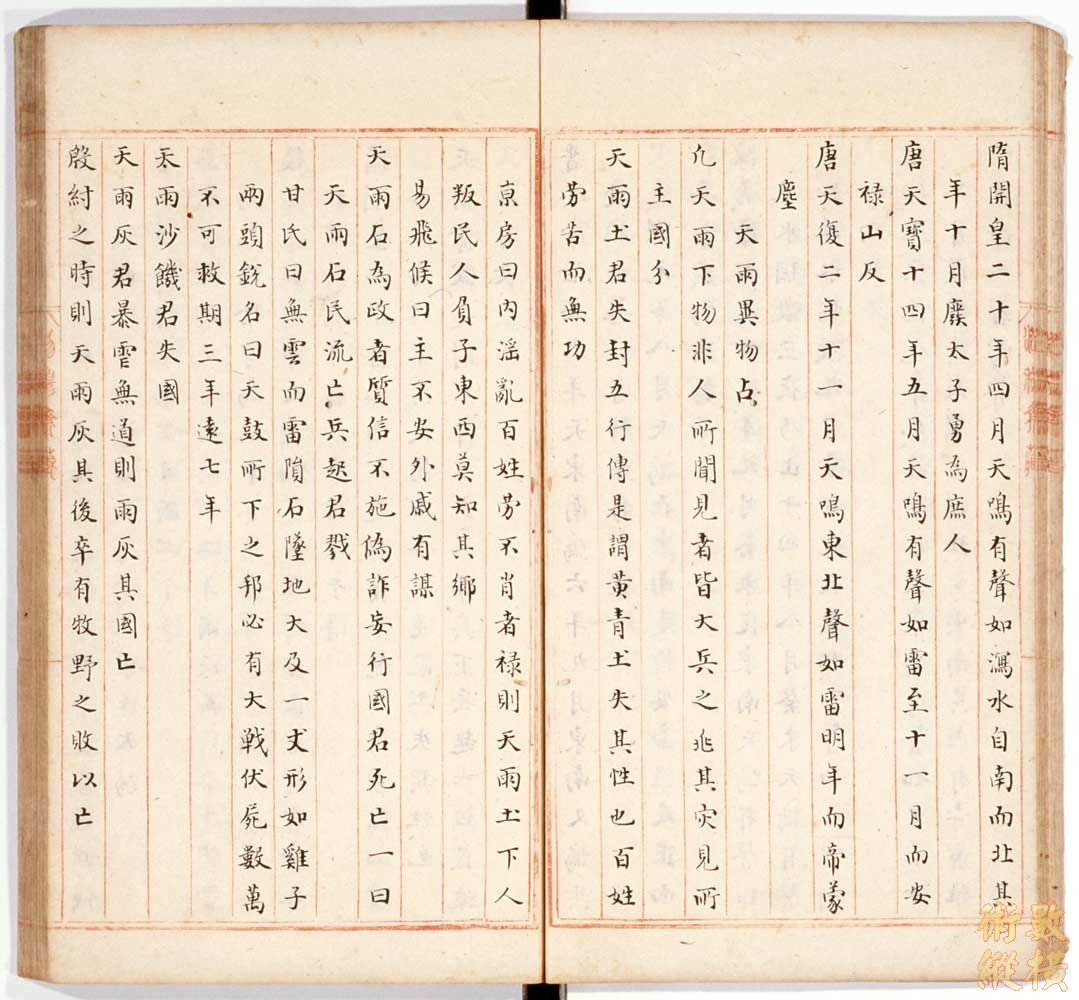 隋開皇二十年四月天鳴有聲如瀉水自南而北其
年十月廢太子勇為庶人
唐天寶十四年五月天鳴有聲如雷至十一月而安
禄山反
唐天復二年十一月天鳴東北聲如雷明年而帝蒙
塵
天雨異物占
凡天雨下物非人所聞見者皆大兵之兆其灾見所
主國分
天雨土君失封五行傳是謂黄青土失其性也百姓
勞苦而無功
京房曰内滛亂百姓勞不肖者禄則天雨土下人
叛民人負子東西莫知其鄉
易飛候曰主不安外戚有謀
天雨石為政者質信不施偽詐妄行國君死亡一曰
天雨石民流亡兵起君戮
甘氏曰無雲而雷隕石墜地大及一丈形如雞子
兩頭銳名曰天鼓所下之邦必有大戰伏屍數萬
不可救期三年遠七年
天雨沙饑君失國
天雨灰君暴雪無道則雨灰其國亡
殷紂之時則天雨灰其後卒有牧野之敗以亡
數術
縱橫